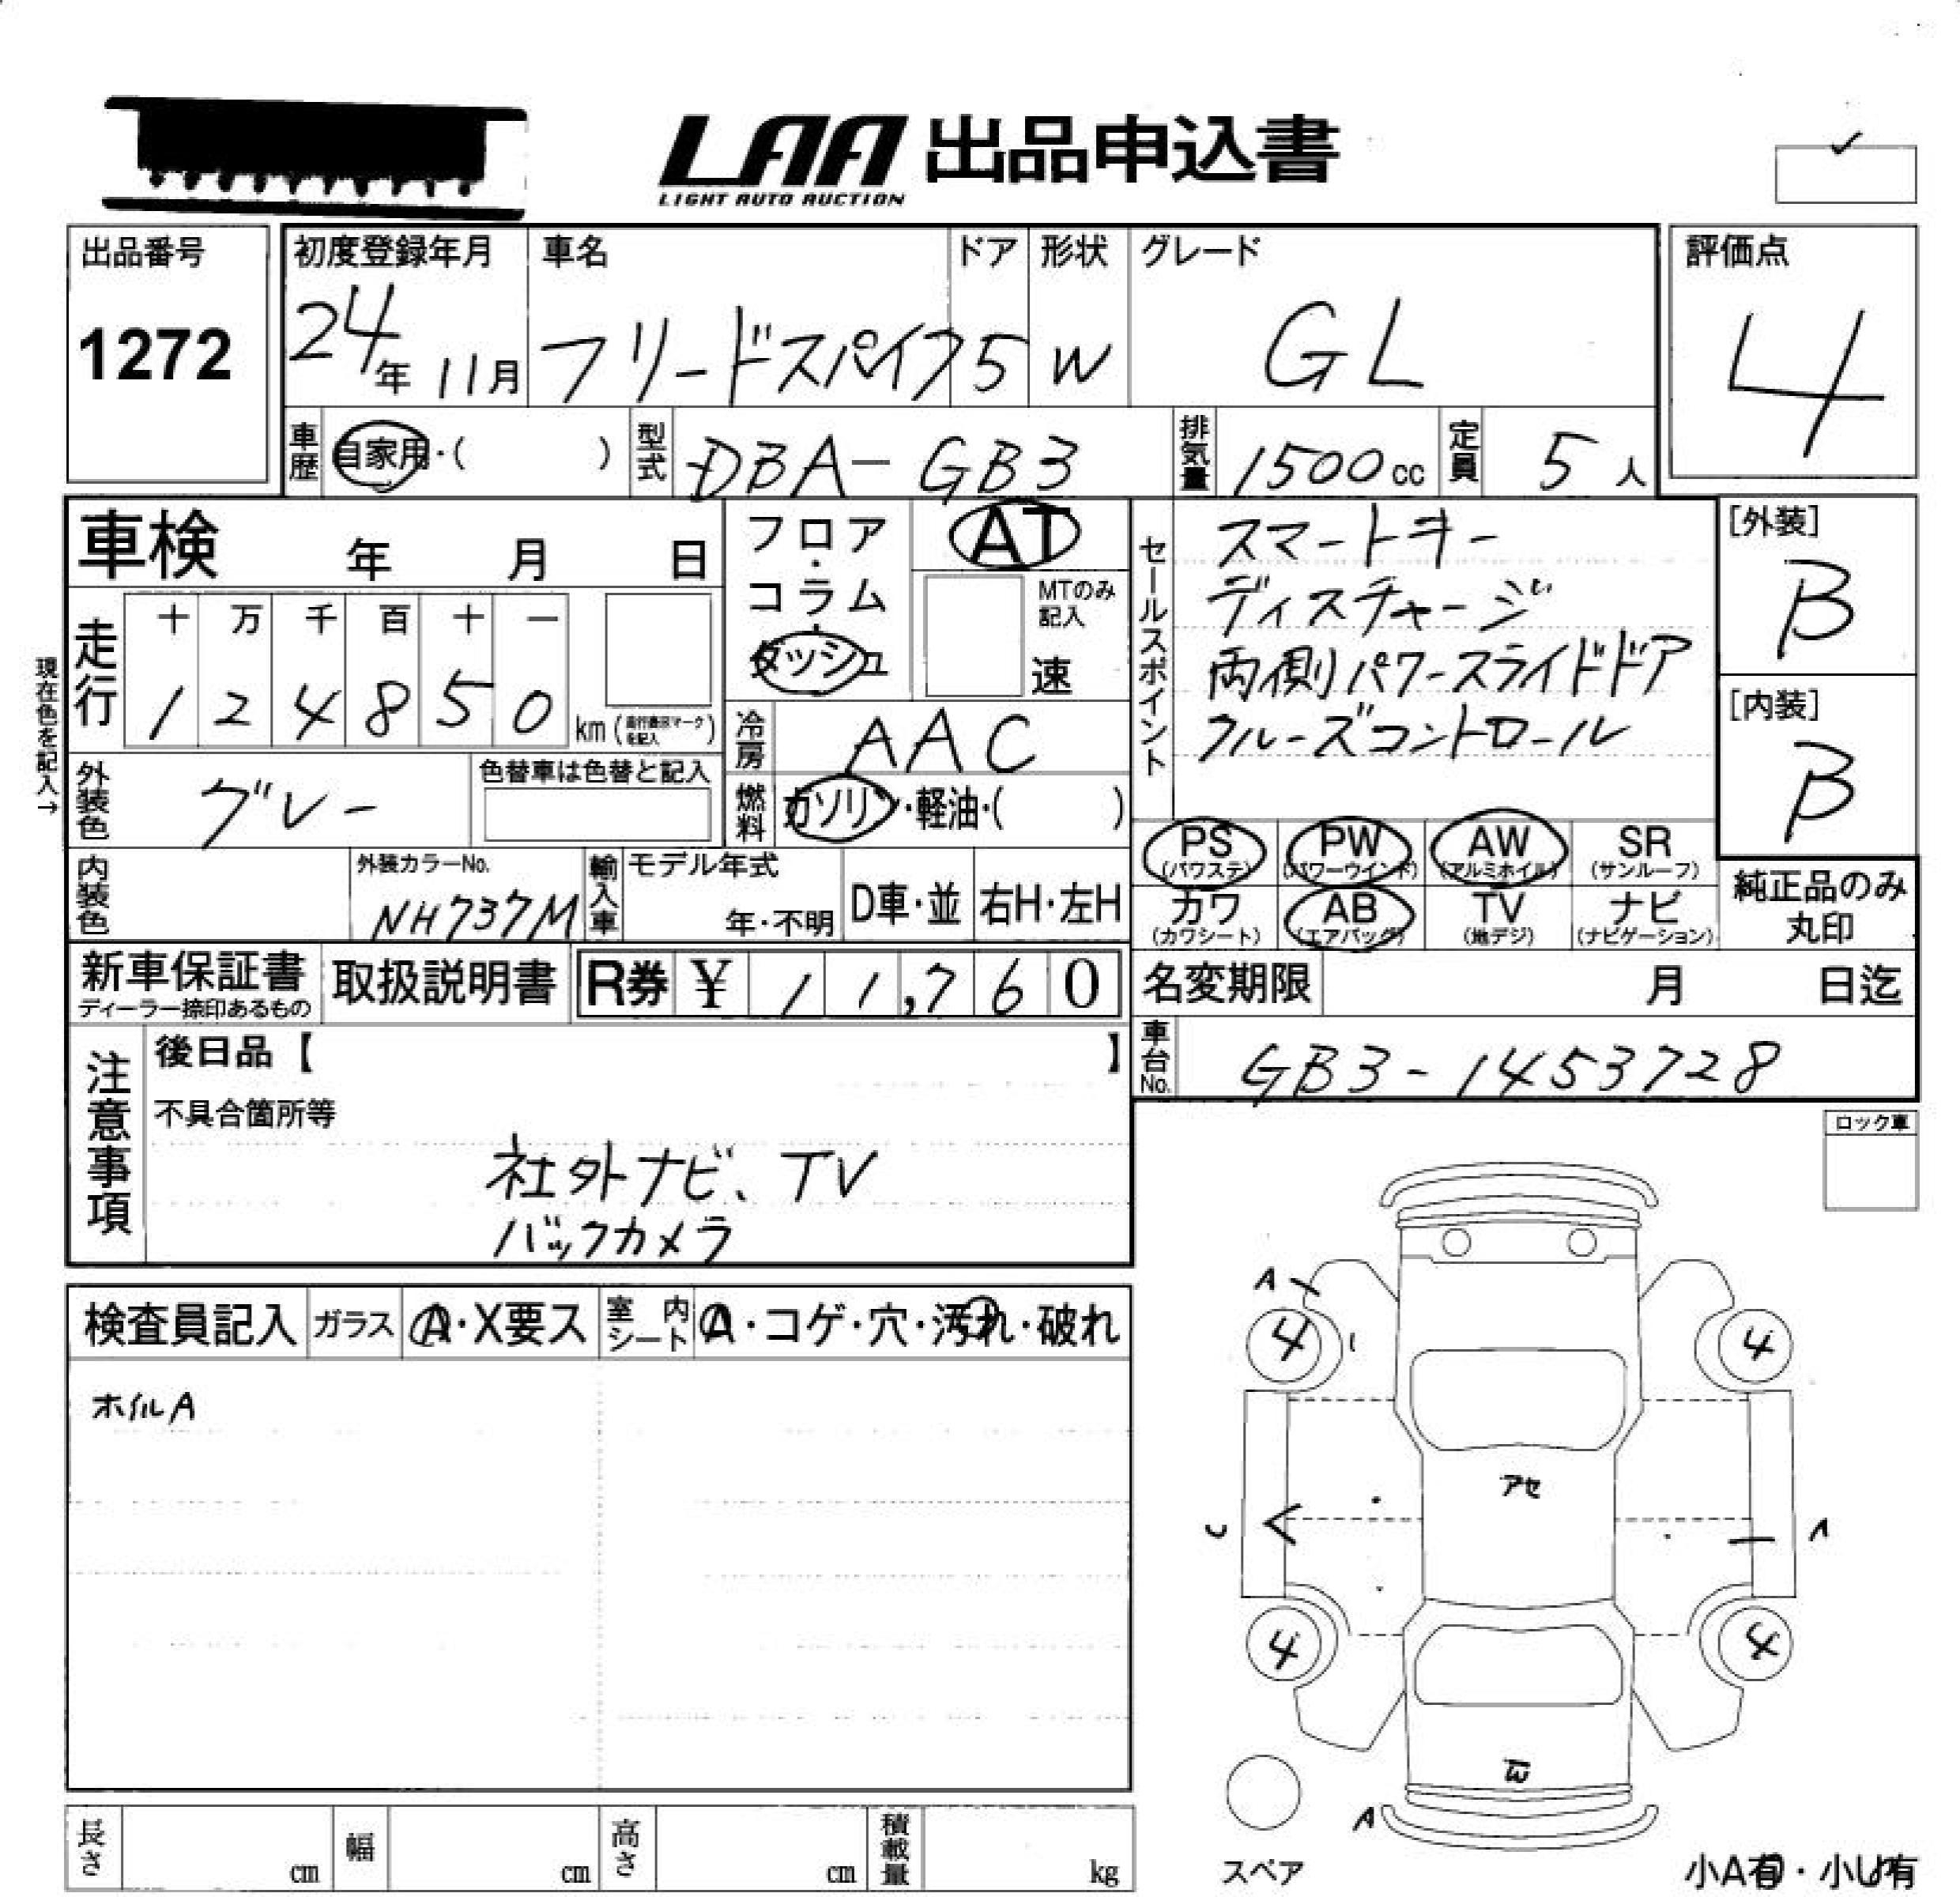 LAA 出品申込書
LIGHT AUTO AUCTION
出品番号
1272
初度登録年月
24年 11月
車名
フリードスパイク
ドア
5
形状
W
グレード
GL
評価点
4
車歴
自家用・( )
型式
DBA-GB3
排気量
1500cc
定員
5人
車検 年 月 日
フロア・
コラム・
ダッシュ
AT
MTのみ
記入
速
セールスポイント
スマートキー
ディスチャージ
両側パワースライドドア
クルーズコントロール
[外装]
B
[内装]
B
現在色を記入→
走行
十 万 千 百 十 一
1 2 4 8 5 0 km (走行表示マークを記入)
冷房
AAC
外装色
グレー
色替車は色替と記入
燃料
ガソリン・軽油・( )
PS
(パワステ)
PW
(パワーウインド)
AW
(アルミホイル)
SR
(サンルーフ)
カワ
(カワシート)
AB
(エアバッグ)
TV
(地デジ)
ナビ
(ナビゲーション)
純正品のみ
丸印
内装色
外装カラーNo.
NH737M
輸入車
モデル年式
年・不明
D車・並
右H・左H
新車保証書
ディーラー捺印あるもの
取扱説明書
R券 ¥ 11,760
名変期限 月 日迄
車台No.
GB3-1453728
注意事項
後日品【 】
不具合箇所等
社外ナビ、TV
バックカメラ
ロック車
検査員記入
ガラス
A・X要ス
室内
シート
A・コゲ・穴・汚れ・破れ
ホイルA
A
4
4
アセ
4
4
A
スペア
長さ cm
幅 cm
高さ cm
積載量 kg
小A有・小U有